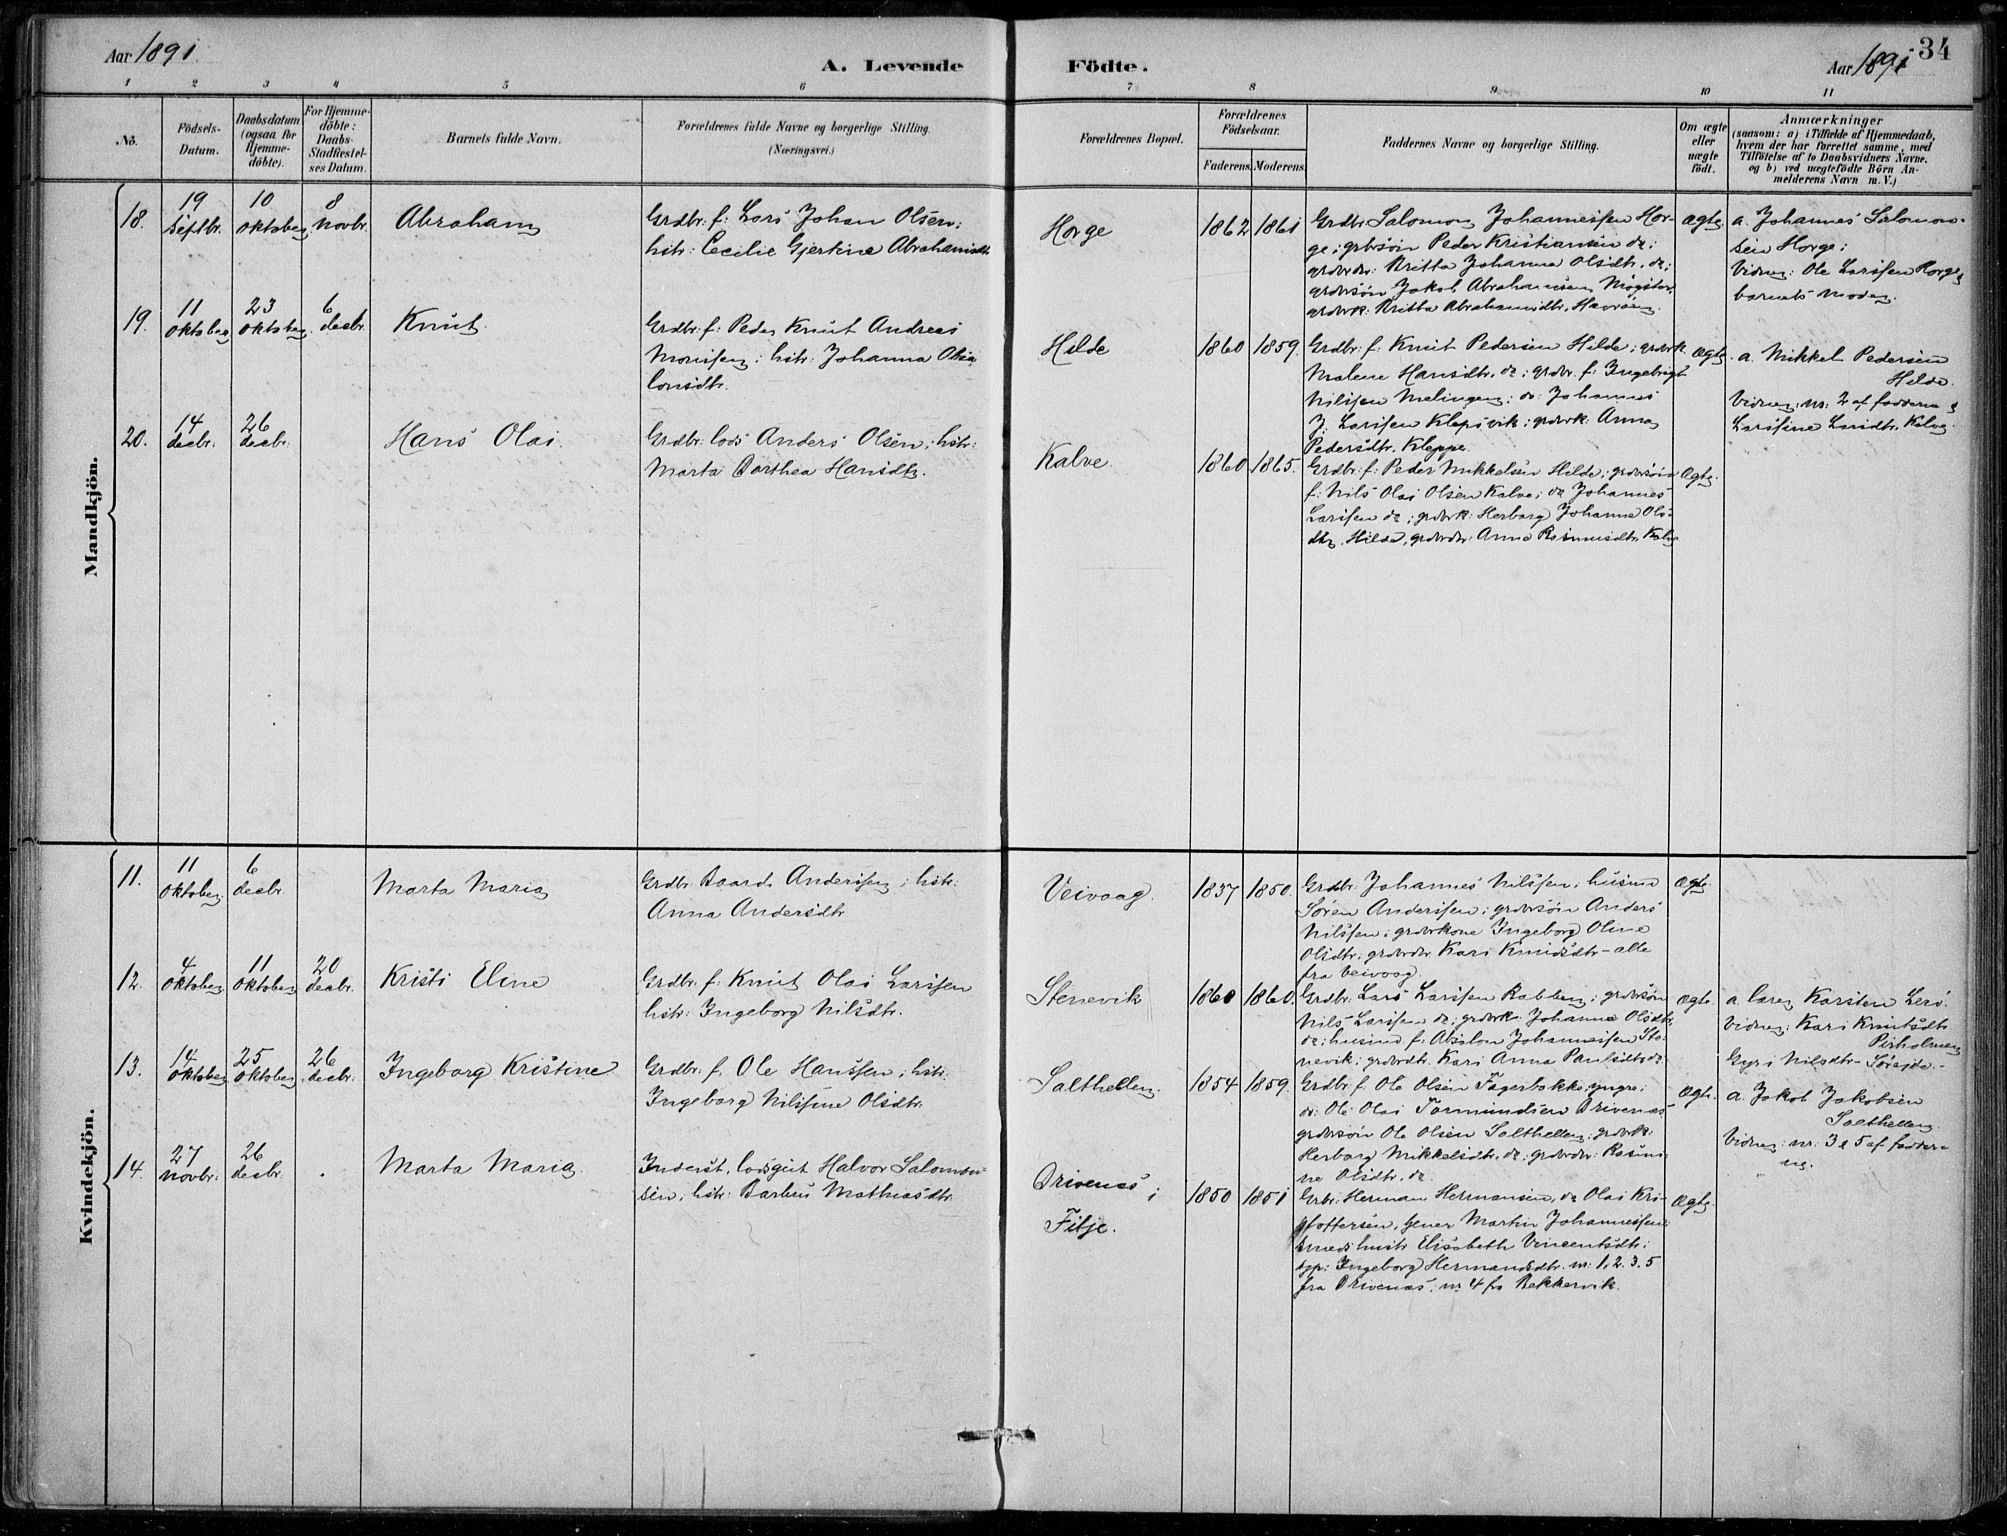 Aar 1891.
A. Levende Födte.
Aar 1891
34
1 2 3 4 5 6 7 8 9 10 11
No.
Födsels-
Datum.
Daabsdatum
(ogsaa for
Hjemme-
döbte).
For Hjemme-
döbte:
Daabs-
Stadfæstel-
ses Datum.
Barnets fulde Navn.
Forældrenes fulde Navne og borgerlige Stilling.
(Næringsvei.)
Forældrenes Bopæl.
Forældrenes
Födselsaar.
Faderens.
Moderens.
Faddernes Navne og borgerlige Stilling.
Om ægte
eller
uægte
födt.
Anmærkninger
(saasom: a) i Tilfælde af Hjemmedaab,
hvem der har forrettet samme, med
Tilföielse af to Daabsvidners Navne,
og b) ved uægtefödte Börn An-
melderens Navn m. V.)
Mandkjön.
18.
19
septbr.
10
oktober
8
novbr.
Abraham
Grdbr. f. Lars Johan Olsen;
hstr: Cecilie Gjertine Abrahamsdtr
Horge
1862
1861
Grdbr Salomon Johannessen Hor-
ge; grdbrsøn Peder Kristiansen do;
grdbrdtr: Britta Johanna Olsdtr. do;
grdbrsøn Jakob Abrahamsen Møgster,
grdbrk: Britta Abrahamsdtr. Havröen
Ægte
a. Johannes Salomon-
sen Horge;
Vidner: Ole Larssen Horge &
barnets moder.
19.
11
oktober
23
oktober
6
decbr.
Knut.
Grdbr. f. Peder Knut Andreas
Monssen; hstr: Johanna Abra
Hilde
1860
1859.
Grdbr. f. Knut Pedersen Hilde; grdbrk.
Malene Hansdtr. do; grdbr. f. Ingebrigt
Nilssen Melingen; do: Johannes
J. Larssen Klepsvik; grdbrk. Anna
Pedersdtr. Kleppe.
Ægte.
a. Mikkel Pedersen
Hilde.
Vidner: nr: 2 af fadderne &
Larsine Larsdtr. Kalve.
20.
14
decbr.
26
decbr.
Hans Olai.
Grdbr. lods Anders Olsen; hstr:
Marta Dorthea Hansdtr.
Kalve.
1860
1865.
Grdbr. f. Peder Mikkelsen Hilde; grdbrsøn
f. Nils Olai Olsen Kalve; do Johannes
Larssen do; grdbrk: Herborg Johanne Ols-
dtr. Hilde, grdbrdtr: Anna Rasmusdtr. Kalve
Ægte.
Kvindekjön.
11.
11
oktober
6
decbr.
Marta Maria
Grdbr. Baard Anderssen; hstr:
Anna Andersdtr
Veivaag.
1837
1850.
Grdbr. Johannes Nilssen; husmd
Søren Anderssen; grdbrsøn Anders
Nilssen; grdbrkone Ingeborg Oline
Olsdtr; grdbrdtr. Kari Knudsdtr – alle
fra Veivaag.
Ægte.
12.
4
oktober
11
oktober
20
decbr.
Kristi Eline
Grdbr. f. Knut Olai Larssen
hstr: Ingeborg Nilsdtr.
Stenevik
1860
1860.
Grdbr. Lars Larssen Rabben; grdbrsøn
Nils Larssen do; grdbrk. Johanna Olsdtr.
do; husmd f. Absalon Johannessen Ste-
nevik; grdbrdtr. Kari Anna Paulsdtr. do
Ægte.
a. lærer Karsten Lerö.
Vidner: Kari Knutsdtr
Pirholmen
Gyri Nilsdtr –
13.
14
oktober
25
oktober
26
decbr.
Ingeborg Kristine
Grdbr. f. Ole Hanssen; hstr:
Ingeborg Nilsine Olsdtr.
Salthellen.
1854
1859.
Grdbr. f. Ole Olsen Fagerbakke, yngre;
do: Ole Olai Tormundsen Drivenes;
grdbrsøn Ole Olsen Salthellen; grdbrk:
Herborg Mikkelsdtr. do; grdbrdtr: Rasmi-
ne Olsdtr. do.
Ægte.
a. Jakob Jakobsen
Salthellen.
Vidner: nr: 3 & 5 af fadder-
ne.
14.
27
novbr:
26
decbr.
Marta Maria
Inderst, lodsgut Halvor Salomon-
sen; hstr: Barbru Mathiasdtr.
Drivenes i
Fitje.
1850
1851
Grbr. Herman Hermansen, do Olai Kri-
stoffersen, Martin Johannessen;
hustr Elisabeth Vincentsdtr;
Ingeborg Hermansdtr. nr: 1, 2. 3. 5
fra Drivenes; nr 4 fr Bekkervik.
Ægte.